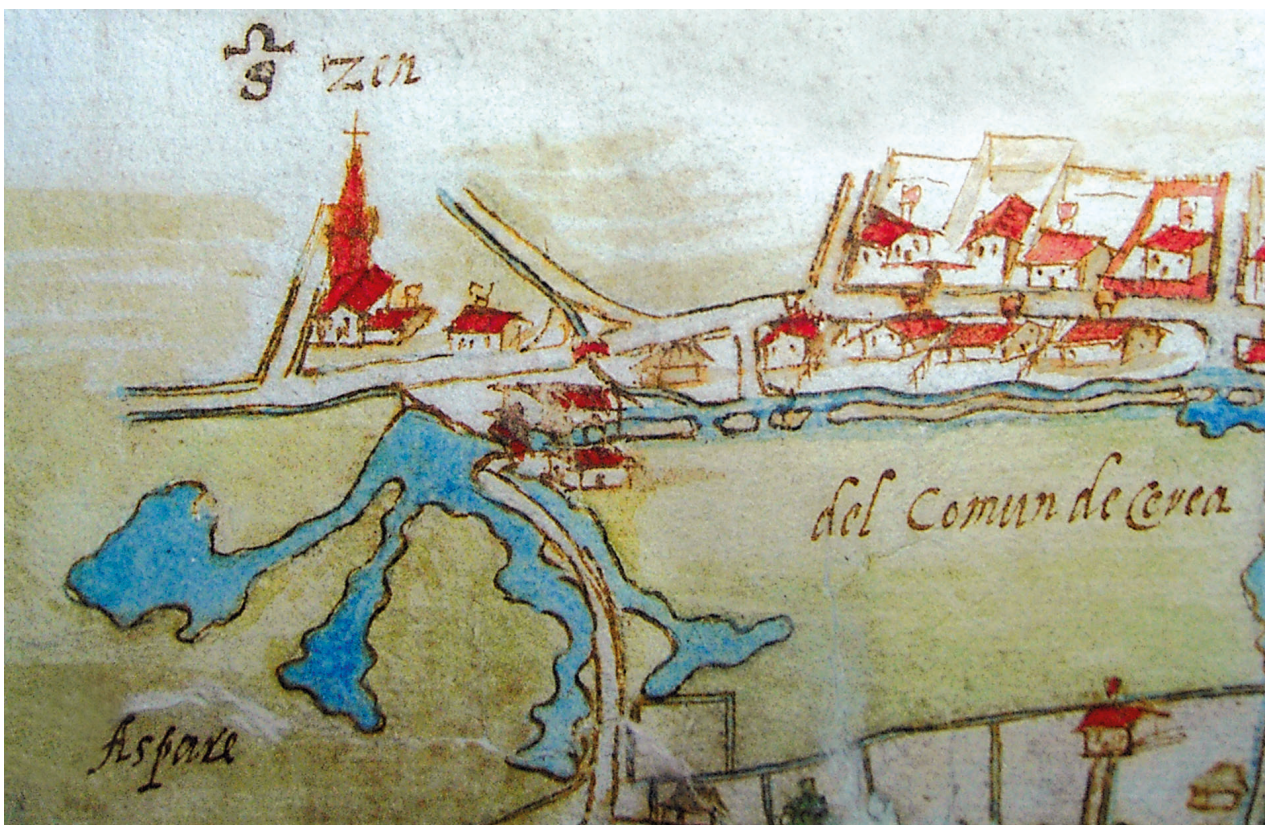 S Zen
del Comun de Cerea
Aspare